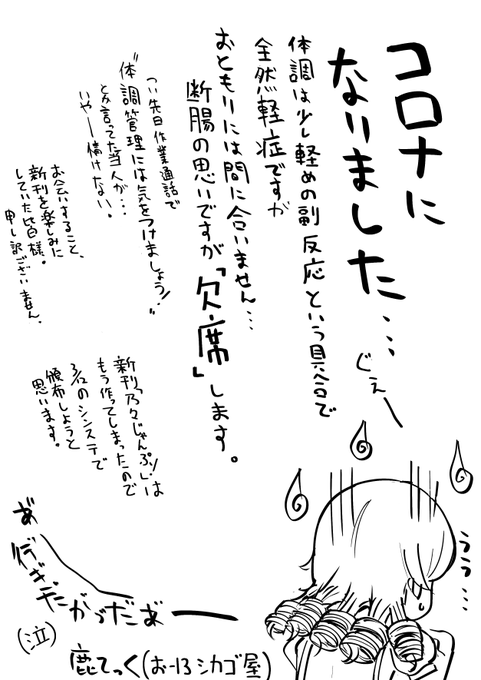 コロナに
なりました…
体調は少し軽めの副反応という具合で
全然軽症ですが
おともりには間に合いません…
断腸の思いですが「欠席」します。
つい先日作業通話で
"体調管理には気をつけましょう!"
とか言ってた当人が…
いやー情けない。
お会いすること、
新刊を楽しみに
していた皆様。
申し訳ございません。
ぐぇー
新刊「乃々じゃんぷ!」は
もう作ってしまったので
3/12のシンステで
頒布しようと
思います。
うう…
あ゛
行ぎだがっだあ゛ー
(泣)
鹿てっく(お-13シカゴ屋)